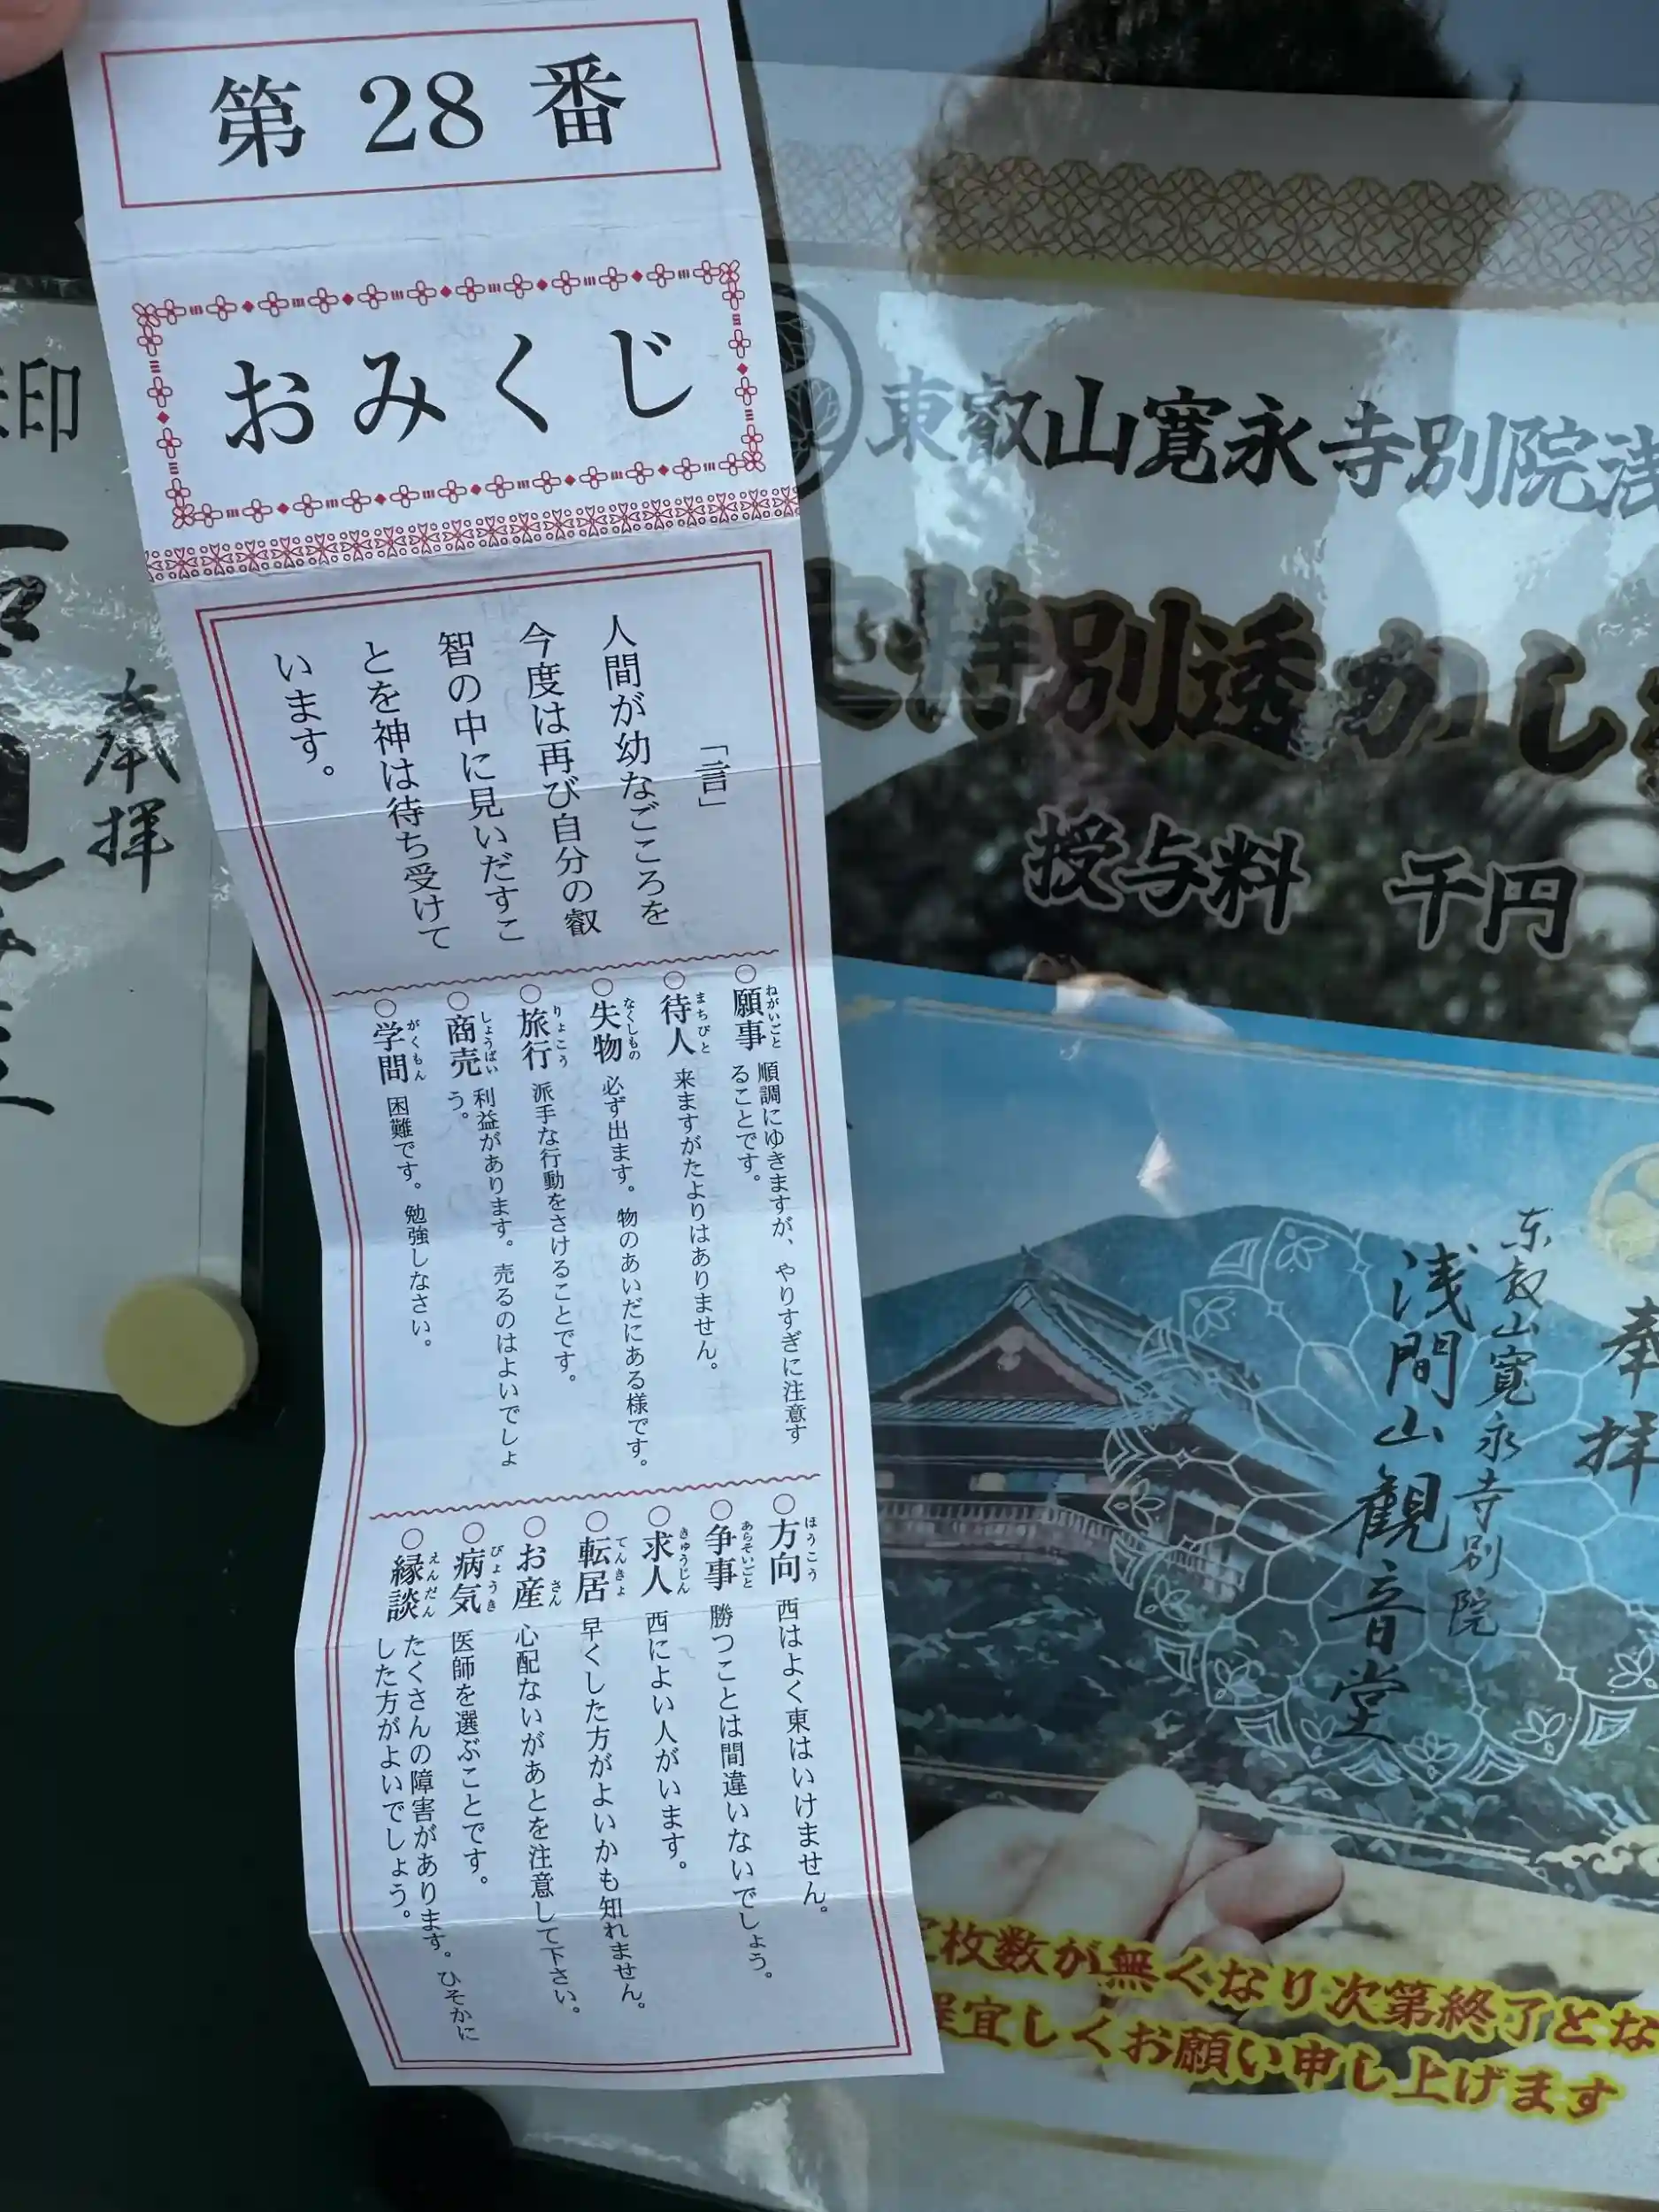 第28番
おみくじ
「一言」
人間が幼なごころを
今度は再び自分の叡
智の中に見いだすこ
とを神は待ち受けて
います。
○願事 ねがいごと 順調にゆきますが、やりすぎに注意す
ることです。
○待人 まちびと 来ますがたよりはありません。
○失物 なくしもの 必ず出ます。物のあいだにある様です。
○旅行 りょこう 派手な行動をさけることです。
○商売 しょうばい 利益があります。売るのはよいでしょ
う。
○学問 がくもん 困難です。勉強しなさい。
○方向 ほうこう 西はよく東はいけません。
○争事 あらそいごと 勝つことは間違いないでしょう。
○求人 きゅうじん 西によい人がいます。
○転居 てんきょ 早くした方がよいかも知れません。
○お産 さん 心配ないがあとを注意して下さい。
○病気 びょうき 医師を選ぶことです。
○縁談 えんだん たくさんの障害があります。ひそかに
した方がよいでしょう。
東叡山寛永寺別院浅
特別透かし
授与料 千円
奉拝
东叡山寛永寺別院
浅間山観音堂
枚数が無くなり次第終了とな
宜しくお願い申し上げます
印
奉拝